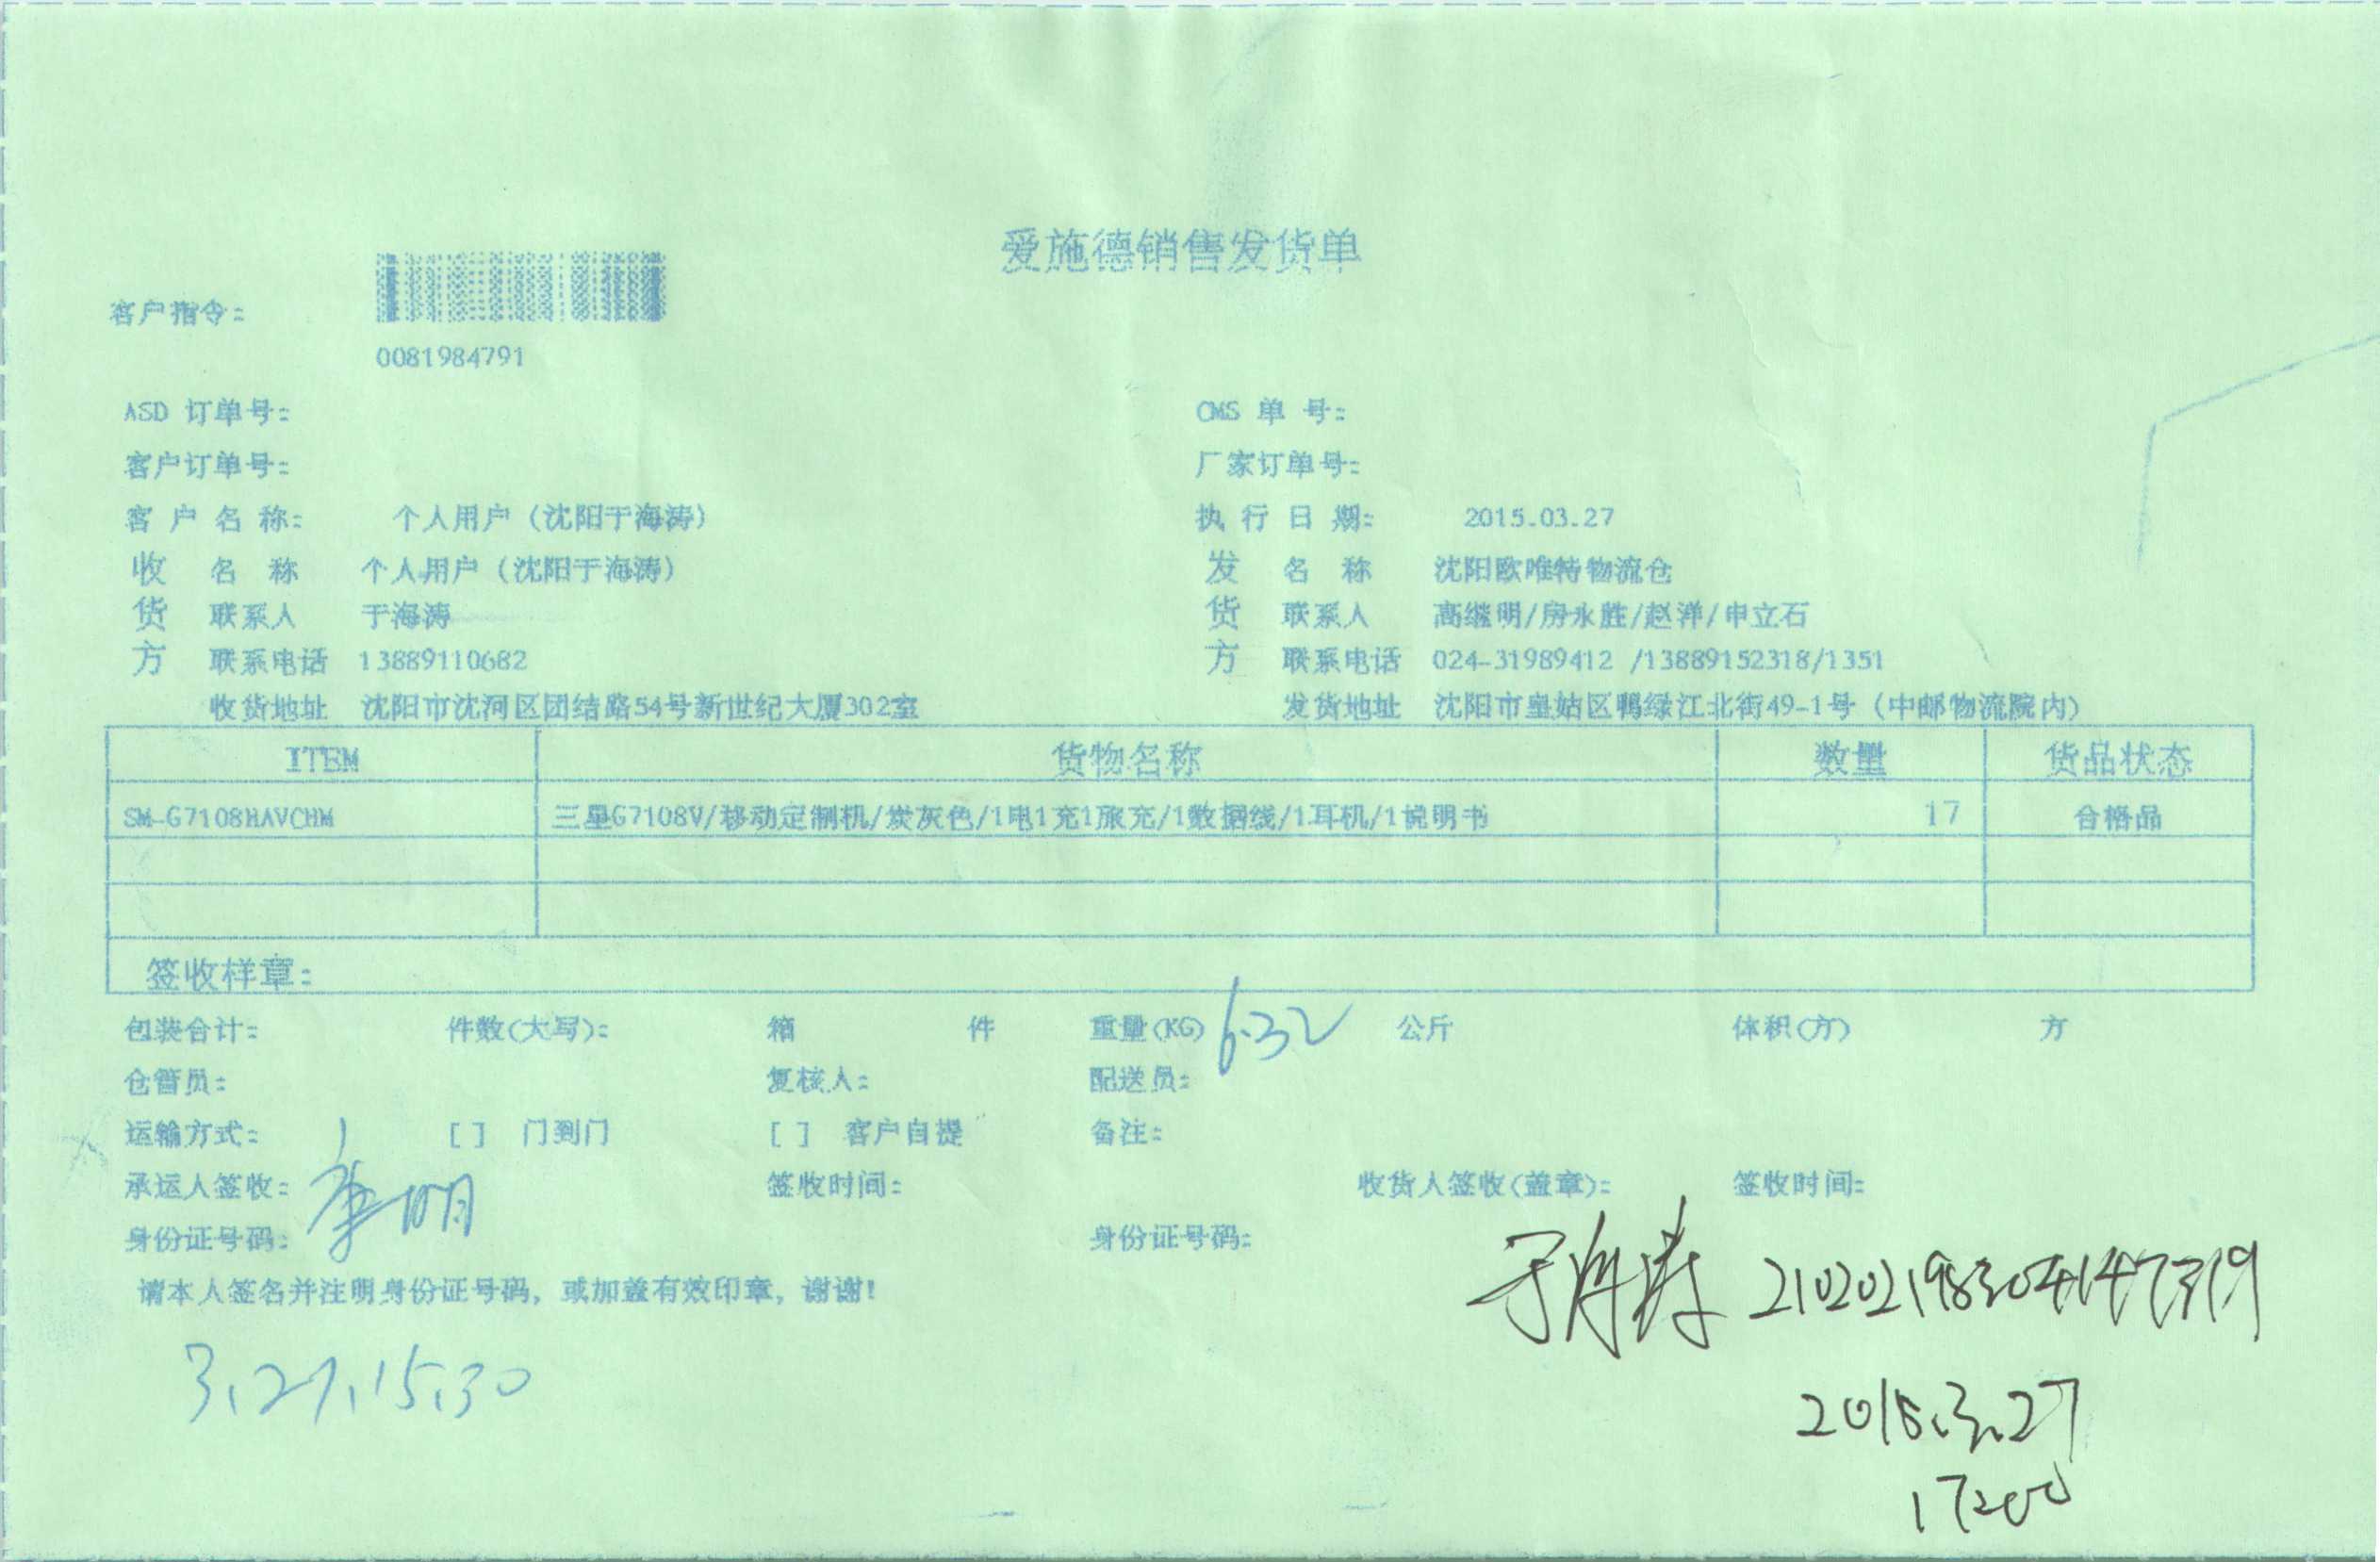 爱施德销售发货单
客户指令:
0081984791
ASD 订单号: CMS 单 号:
客户订单号: 厂家订单号:
客 户 名 称: 个人用户（沈阳于海涛） 执 行 日 期: 2015.03.27
收 名 称 个人用户（沈阳于海涛） 发 名 称 沈阳欧唯特物流仓
货 联系人 于海涛 货 联系人 高继明/房永胜/赵洋/申立石
方 联系电话 13889110682 方 联系电话 024-31989412 /13889152318/1351
收货地址 沈阳市沈河区团结路54号新世纪大厦302室 发货地址 沈阳市皇姑区鸭绿江北街49-1号（中邮物流院内）
ITEM 货物名称 数量 货品状态
SM-G7108HAVCHM 三星G7108V/移动定制机/炭灰色/1电1充1旅充/1数据线/1耳机/1说明书 17 合格品
签收样章:
包装合计: 件数(大写): 箱 件 重量(KG) 6.32 公斤 体积(方) 方
仓管员: 复核人: 配送员:
运输方式: [ ] 门到门 [ ] 客户自提 备注:
承运人签收: 签收时间: 收货人签收(盖章): 签收时间:
身份证号码: 身份证号码:
于海涛 210202198304147319
请本人签名并注明身份证号码, 或加盖有效印章, 谢谢!
3.27.15.30
2015.3.27
17:00